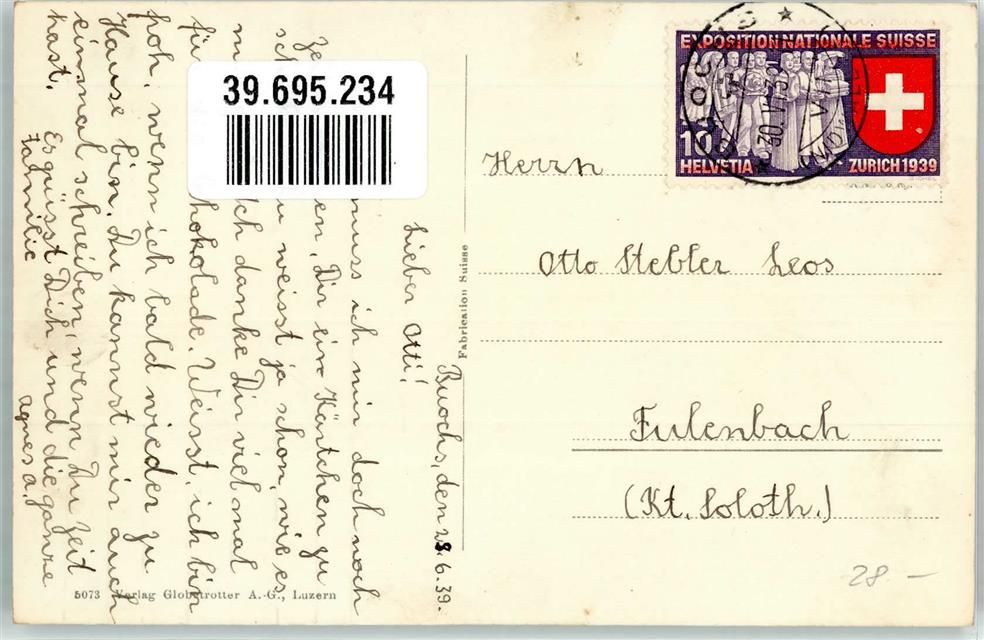 Buochs, den 28.6.39.
Lieber Otti!
muss ich mir doch noch
Ze en, Dir ein Kärtchen zu
sch u weisst ja schon, wie es
m Ich danke Dir viel mal
für hokolade. Weisst, ich bin
froh, wenn ich bald wieder zu
Hause bin. Du kannst mir auch
einmal schreiben, wenn Du Zeit
hast.
Es grüsst Dich und die ganze
Familie
Agnes a.
39.695.234
EXPOSITION NATIONALE SUISSE
10
HELVETIA
ZURICH 1939
30.VI.39
Fabrication Suisse
Herrn
Otto Stebler Leos
Fulenbach
(Kt. Soloth.)
28 -
5073 Verlag Globetrotter A.-G., Luzern